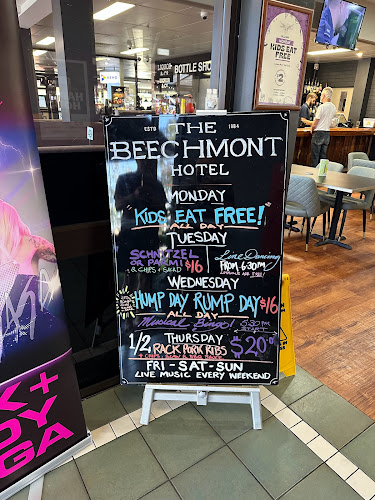 LIQUOR
BOTTLE SHO
KIDS EAT
FREE
ESTD 1984
THE
BEECHMONT
HOTEL
MONDAY
"KIDS EAT FREE!"
ALL DAY
TUESDAY
SCHNITZEL
OR PARMI $16
& CHIPS + SALAD
Line Dancing
FROM 6:30PM
WEDNESDAY
HUMP DAY RUMP DAY $16
ALL DAY
Musical Bingo! 6:30PM
START
THURSDAY
1/2 RACK PORK RIBS $20
FRI - SAT - SUN
LIVE MUSIC EVERY WEEKEND
K+
DY
GA